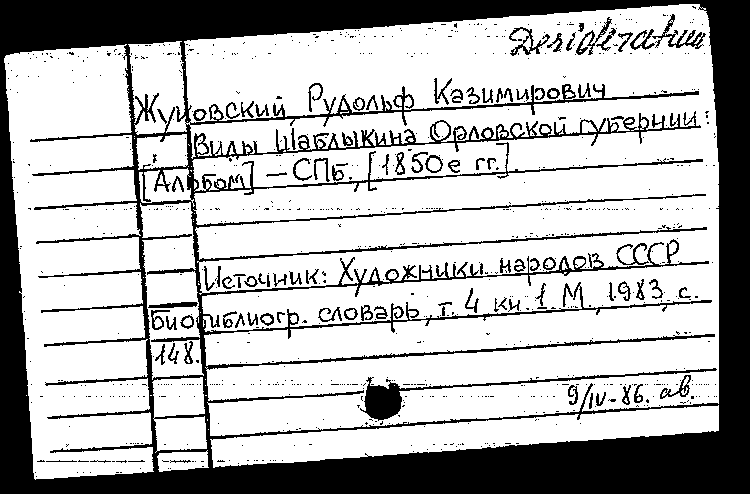 Desideratum
Жуковский, Рудольф Казимирович
Виды Шаблыкина Орловской губернии:
[Альбом] – СПб., [1850е гг.].
Источник: Художники народов СССР
биобиблиогр. словарь, т. 4, кн. 1. М., 1983, с.
148.
9/IV-86. ав.